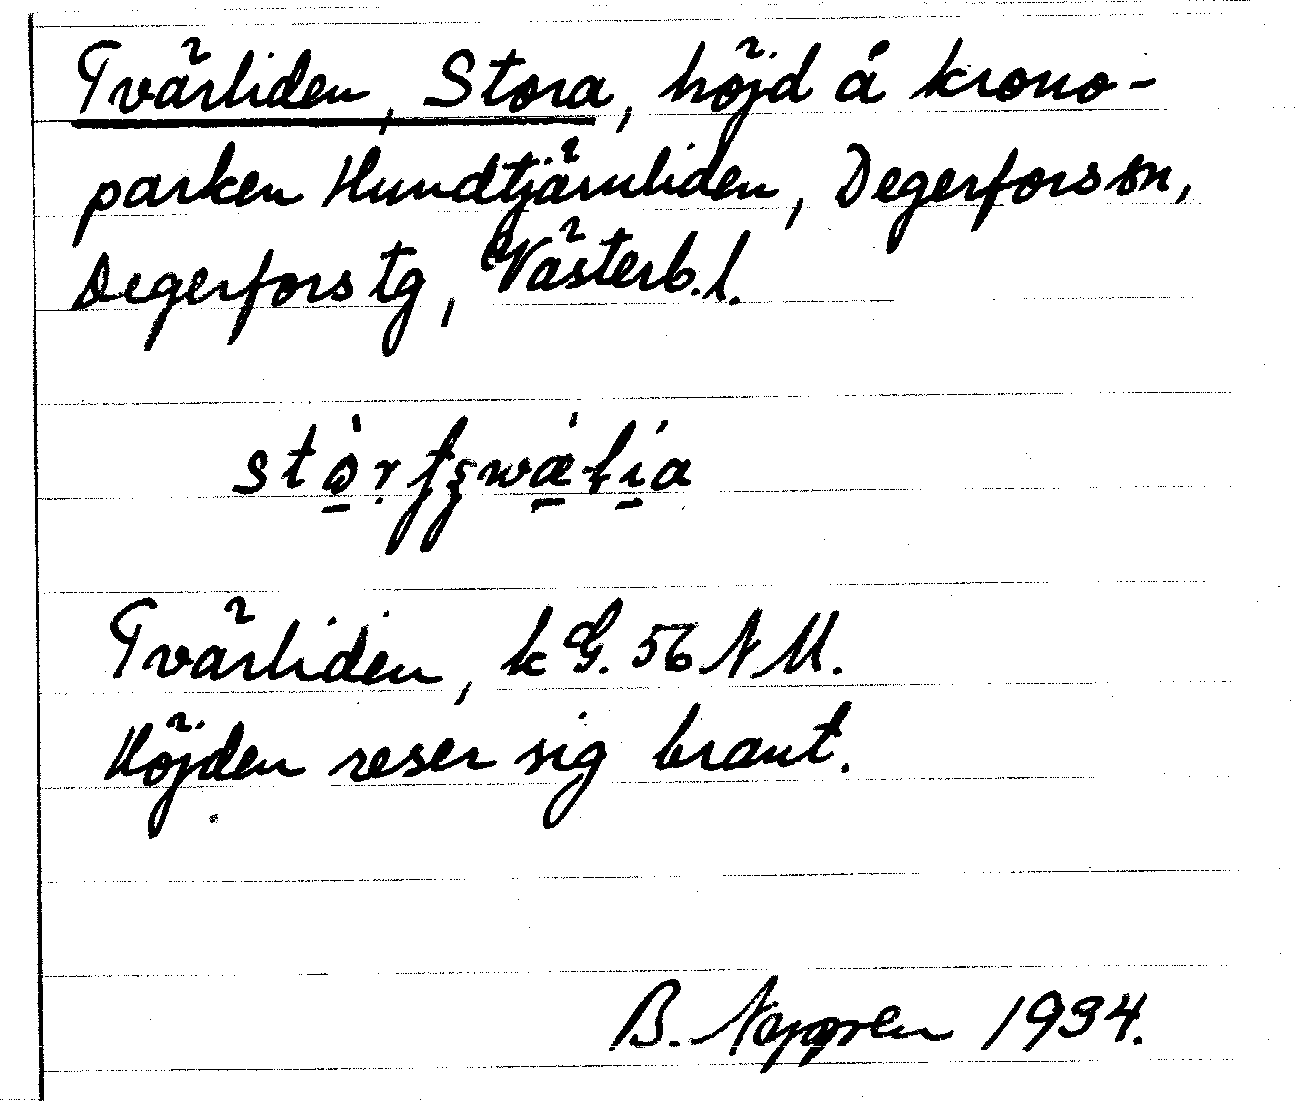 Tvärliden, Stora, höjd å krono-
parken Hundtjärnliden, Degerfors sn,
Degerfors tg, Västerb. l.
Tvärliden, k G. 56 N M.
Höjden reser sig brant.
B. Nyggren 1934.